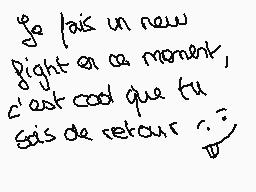 Je fais un new
fight en ce moment,
c'est cool que tu
sois de retour